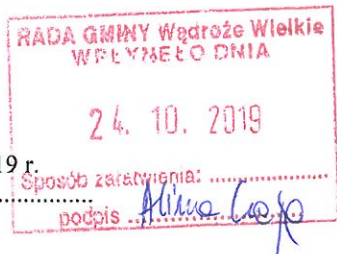 RADA GMINY Wądroże Wielkie
WPŁYNEŁO DNIA
24. 10. 2019
19 r.
Sposób załatwienia: ....................
podpis .................... Alina